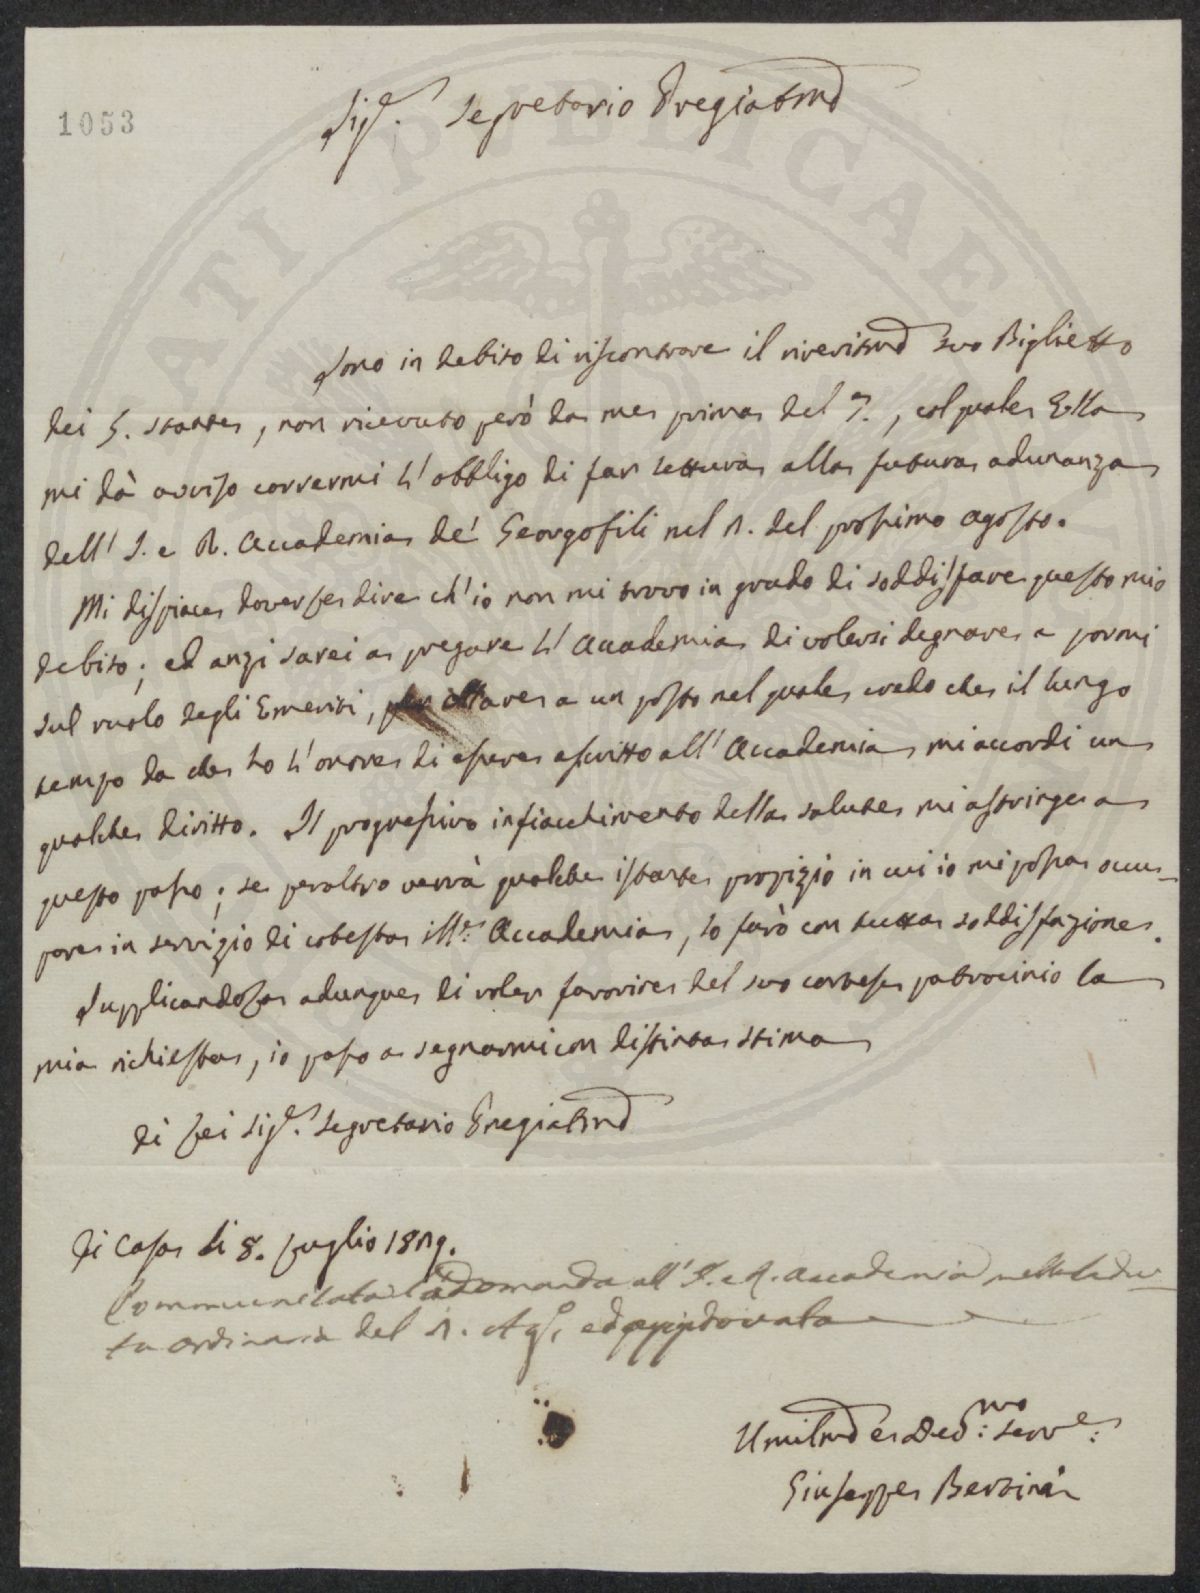 1053
Sig.e Segretario Pregiatmo
Sono in debito di riscontrare il riveritmo suo Biglietto
dei 5. stante, non ricevuto però da me prima del 7., col quale Ella
mi dà avviso corrermi l'obbligo di far lettura alla futura adunanza
dell'I. e R. Accademia de' Georgofili nel 1. del prossimo Agosto.
Mi dispiace doverle dire ch'io non mi trovo in grado di soddisfare questo mio
debito; ed anzi sarei a pregare l'Accademia di volersi degnare a pormi
sul ruolo degli Emeriti, a un posto nel quale credo che il lungo
tempo da che ho l'onore di essere ascritto all'Accademia mi accordi un
qualche diritto. Il progressivo infiacchimento della salute mi astringe a
questo passo; se peraltro verrà qualche istante propizio in cui io mi possa occu-
pare in servizio di cotesta ill.e Accademia, lo farò con tutta soddisfazione.
Supplicandola adunque di voler favorire del suo cortese patrocinio la
mia richiesta, io passo a segnarmi con distinta stima
di Lei Sig.e Segretario Pregiatmo
Di Casa li 8. Luglio 1819.
Communicata la domanda all'I. e R. Accademia nella Sedu-
ta ordinaria del 1. Ag.o ed approvata
Umilmo e Ded:mo Serv.e:
Giuseppe Bertini
ATI PUBLICAE